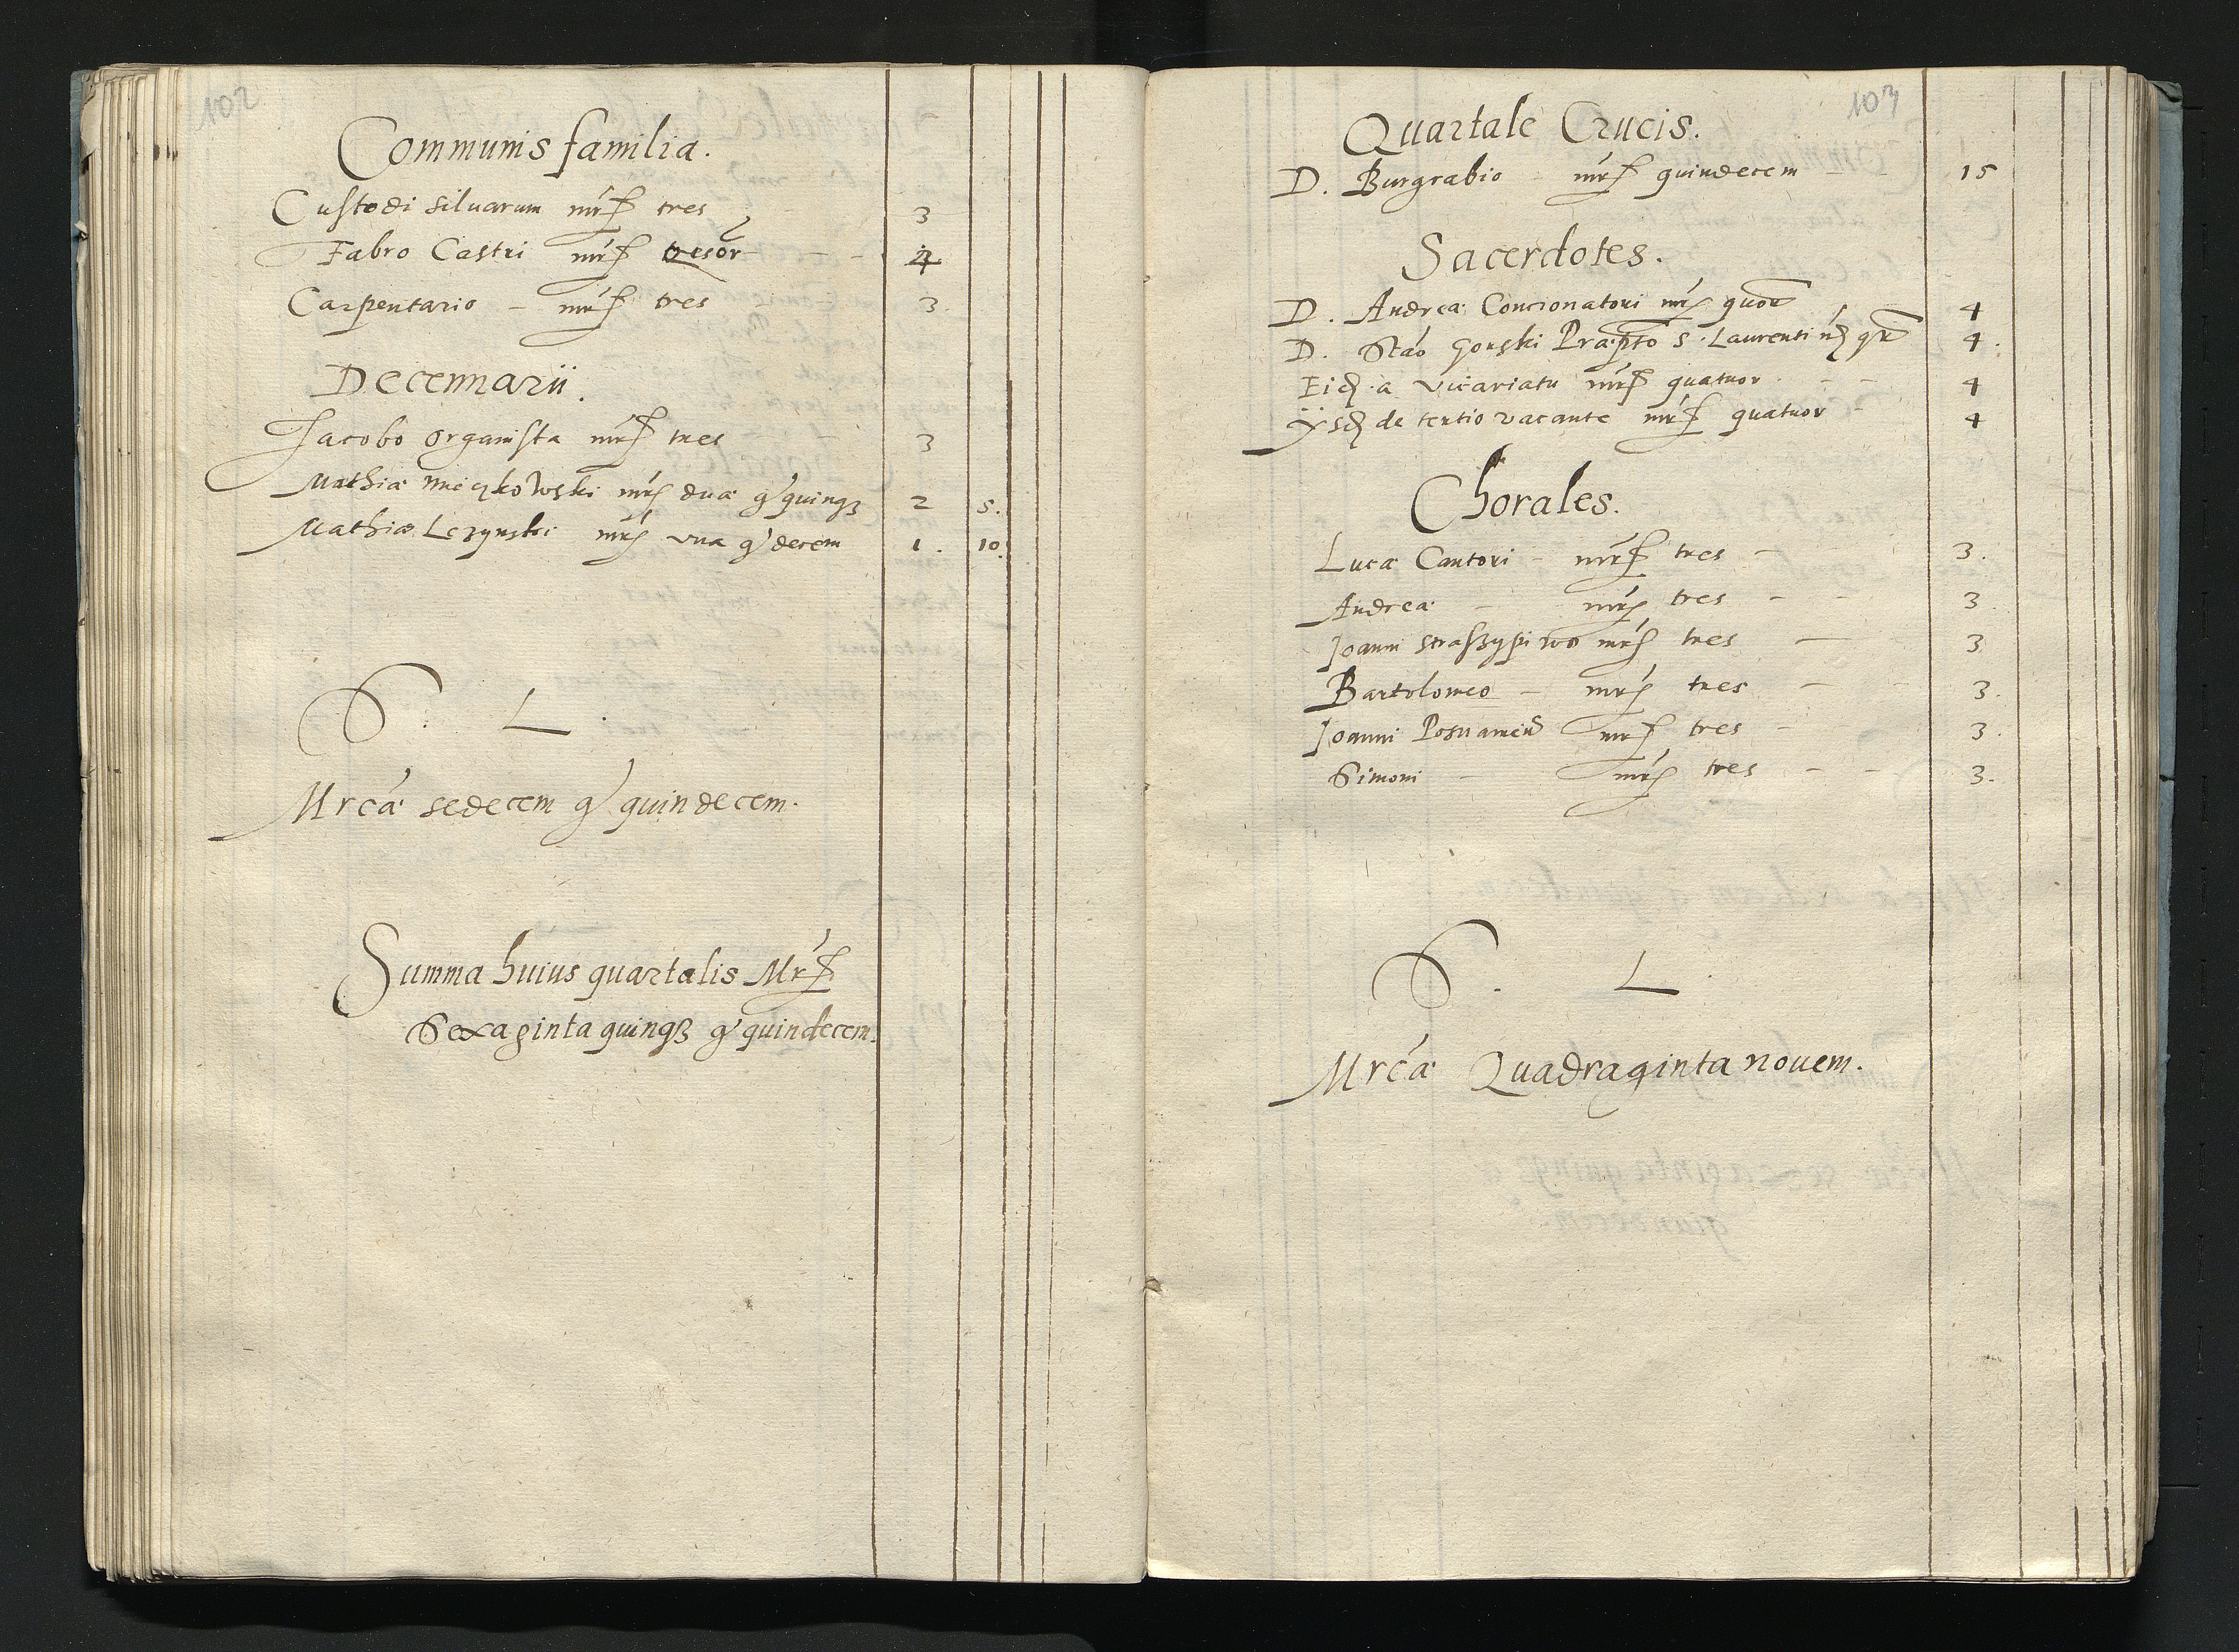 102
Communis familia.
Custodi siluarum mrẹ tres 3
Fabro Castri mrẹ quor 4
Carpentario – mrẹ tres 3
Decennarii.
Jacobo organista mrẹ tres 3
Mathiæ duæ g quinqȝ 2 5.
Mathiæ Lezynski mrẹ vna g decem 1. 10.
S. L.
Mrcæ sedecem g quindecem.
Summa huius quartalis Mrẹ
Sexaginta quinqȝ g quindecem.
103
Quartale Crucis.
D. Burgrabio mrẹ quindecem 15
Sacerdotes.
D. Andreæ Concionatori mrẹ quor 4
D. Stao Gorski Præpto S. Laurenti qr 4.
Eid. a vicariatu mrẹ quatuor 4
Ysd. de tertio vacante mrẹ quatuor 4
Chorales.
Lucæ Cantori – mrẹ tres 3.
Andreæ – mrẹ tres 3.
Joanni mrẹ tres 3
Bartolomeo – mrẹ tres 3.
Joanni Posnamen mrẹ tres 3.
Simoni – mrẹ tres 3.
S. L.
Mrcæ Quadraginta nouem.